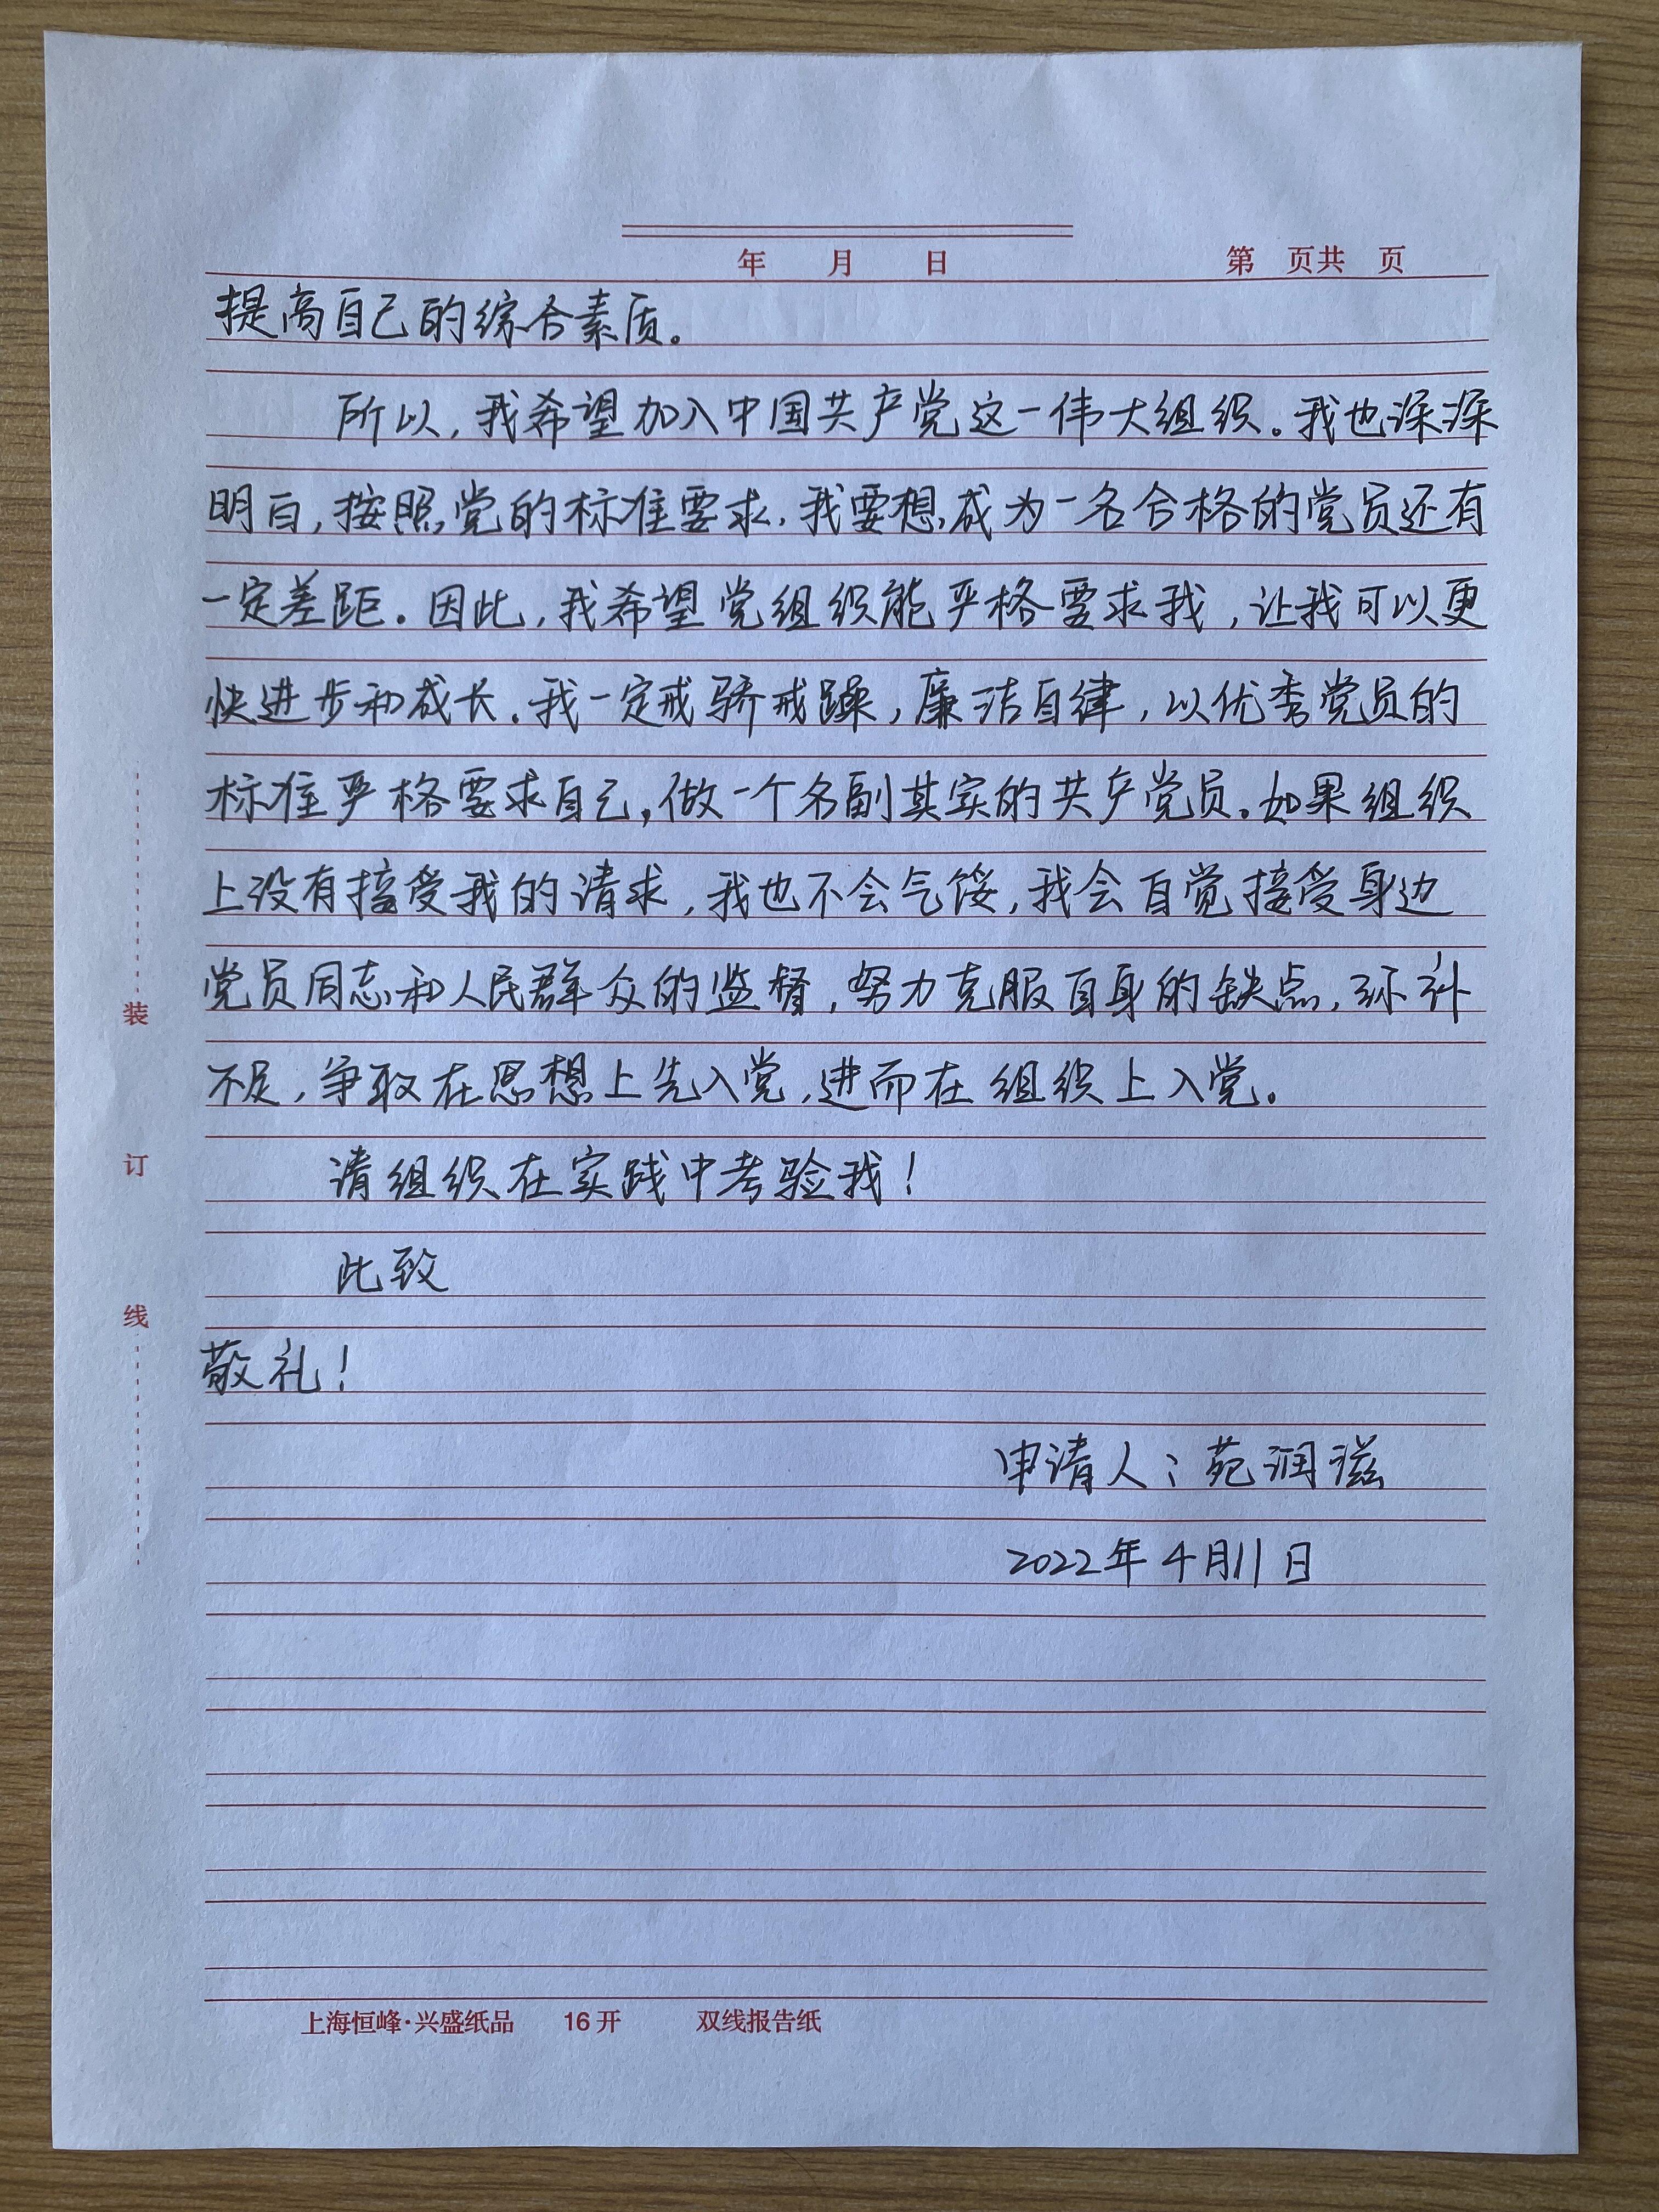 年 月 日 第 页共 页
提高自己的综合素质。
所以,我希望加入中国共产党这一伟大组织。我也深深
明白,按照党的标准要求,我要想成为一名合格的党员还有
一定差距。因此,我希望党组织能严格要求我,让我可以更
快进步和成长。我一定戒骄戒躁,廉洁自律,以优秀党员的
标准严格要求自己,做一个名副其实的共产党员。如果组织
上没有接受我的请求,我也不会气馁,我会自觉接受身边
党员同志和人民群众的监督,努力克服自身的缺点,弥补
不足,争取在思想上先入党,进而在组织上入党。
请组织在实践中考验我!
此致
敬礼!
申请人:苑润滋
2022年4月11日
装
订
线
上海恒峰·兴盛纸品 16开 双线报告纸